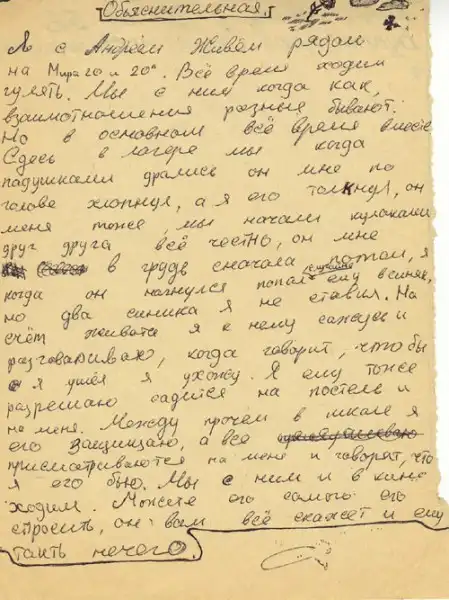 Объяснительная.
Я с Андреем Живём рядом
на Мира 20 и 20а. Всё время ходим
гулять. Мы с ним когда как,
взаимотношения разные бывают.
Но в основном всё время вместе
Сдесь в лагере мы когда
падушками дрались он мне по
голове хлопнул, а я его толкнул, он
меня тоже, мы начали кулаками
друг друга всё честно, он мне
в грудь сначала потом, я
когда он нагнулся попал случайно ему в синяк,
но два синика я не ставил. На
счёт живота я к нему сажусь и
разговариваю, когда говорит, чтобы
я ушёл я ухожу. Я ему тоже
разрешаю садится на постель и
на меня. Между прочем в школе я
его защищаю, а все
присматриваются на меня и говорят, что
я его бью. Мы с ним и в кино
ходим. Можете его самого его
спросить, он вам всё скажет и ему
таить нечего.